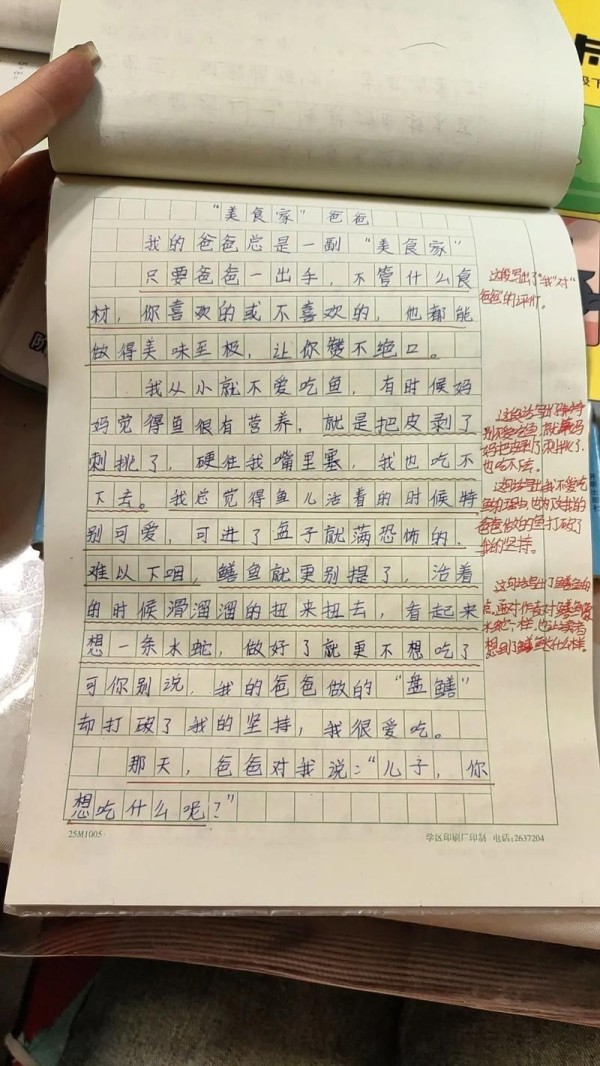 "美食家"爸爸
我的爸爸总是一副"美食家"
只要爸爸一出手，不管什么食
材，你喜欢的或不喜欢的，他都能
做得美味至极，让你赞不绝口。
我从小就不爱吃鱼，有时候妈
妈觉得鱼很有营养，就是把皮剥了
刺挑了，硬往我嘴里塞，我也吃不
下去。我总觉得鱼儿活着的时候特
别可爱，可进了盘子就满恐怖的，
难以下咽，鳝鱼就更别提了，活着
的时候滑溜溜的扭来扭去，看起来
想一条水蛇，做好了就更不想吃了
可你别说，我的爸爸做的"盘鳝"
却打破了我的坚持，我很爱吃。
那天，爸爸对我说："儿子，你
想吃什么呢？"
这段写出了"我"对"
爸爸"的评价。
别不爱吃鱼，就算妈
也吃不下去。
这句话写出我不爱吃
爸爸做的鱼打破了
我的坚持。
这句话写出了鳝鱼的
水蛇一样，也让读者
25M1005
学区印刷厂印制 电话:2637204